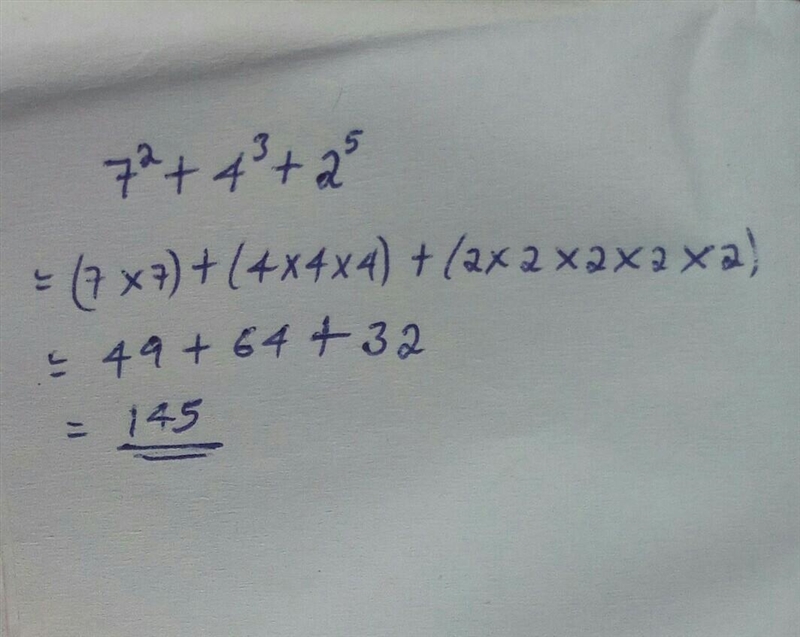 7² + 4³ + 2⁵
= (7 × 7) + (4 × 4 × 4) + (2 × 2 × 2 × 2 × 2)
= 49 + 64 + 32
= 145